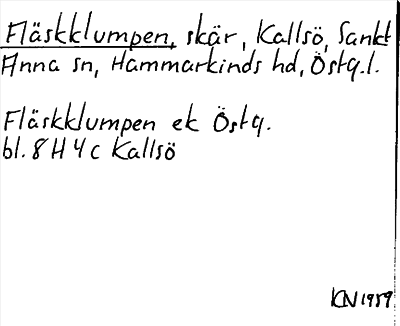 Fläskklumpen, skär, Kallsö, Sankt
Anna sn, Hammarkinds hd, Östg.l.
Fläskklumpen ek Östg.
bl. 8 H 4 c Kallsö
KN 1989